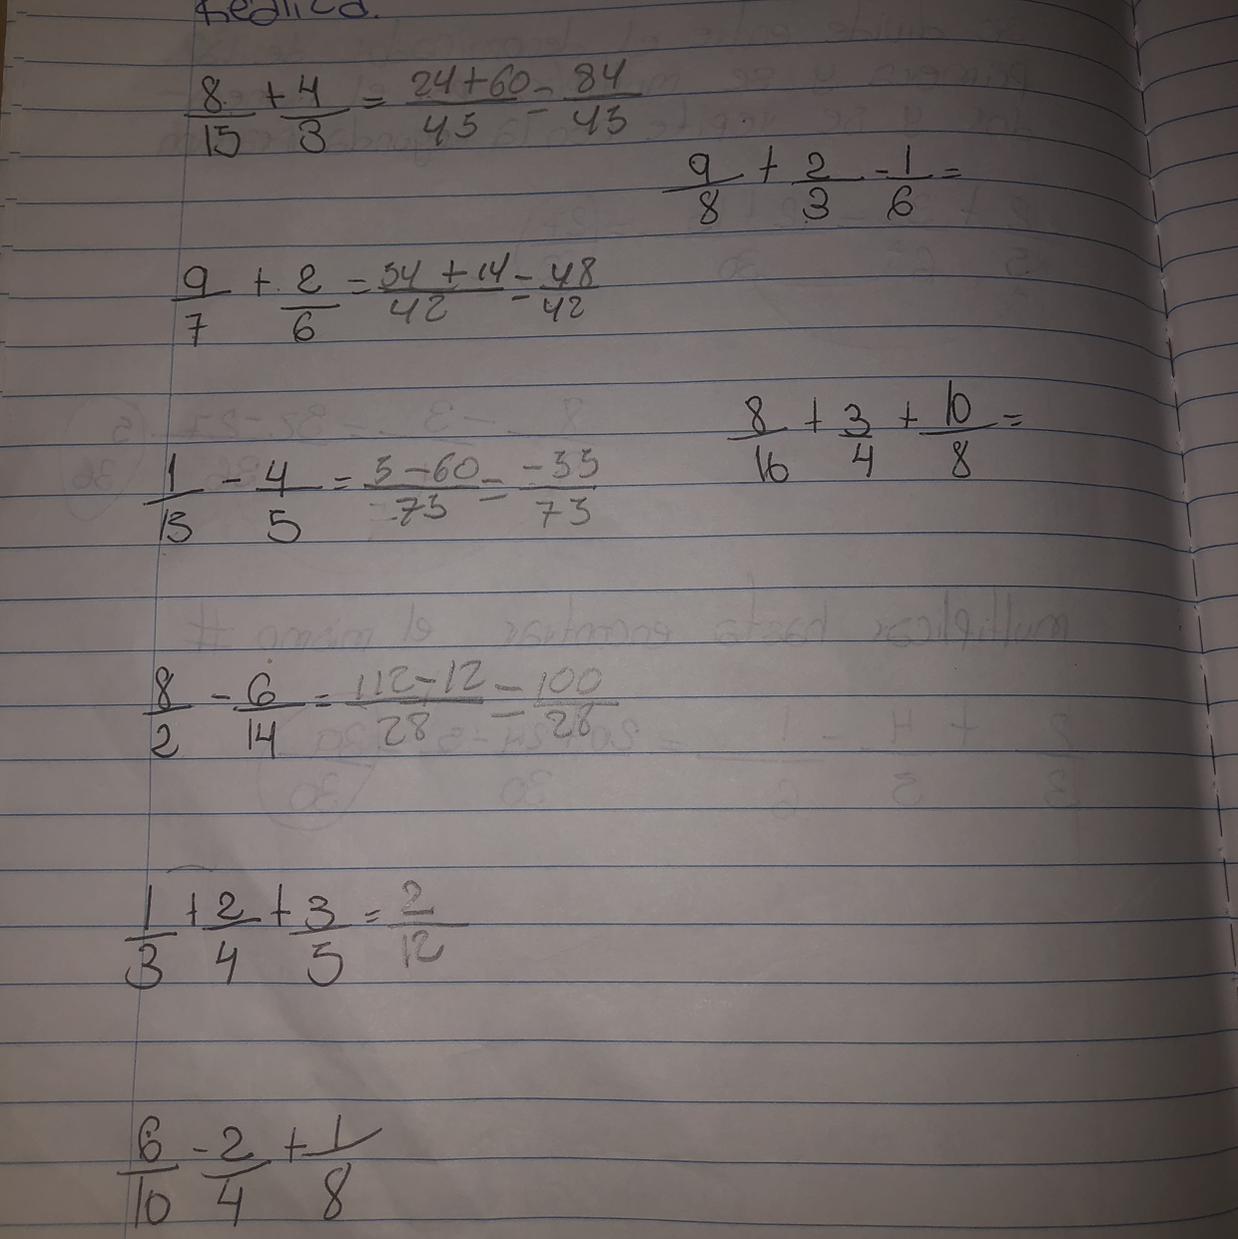 Realiza.
8/15 + 4/3 = 24+60/45 = 84/45
9/8 + 2/3 - 1/6 =
9/7 + 2/6 = 54+14/42 = 48/42
8/16 + 3/4 + 10/8 =
1/15 - 4/5 = 5-60/75 = -55/75
8/2 - 6/14 = 112-12/28 = 100/28
1/3 + 2/4 + 3/5 = 2/12
6/10 - 2/4 + 1/8